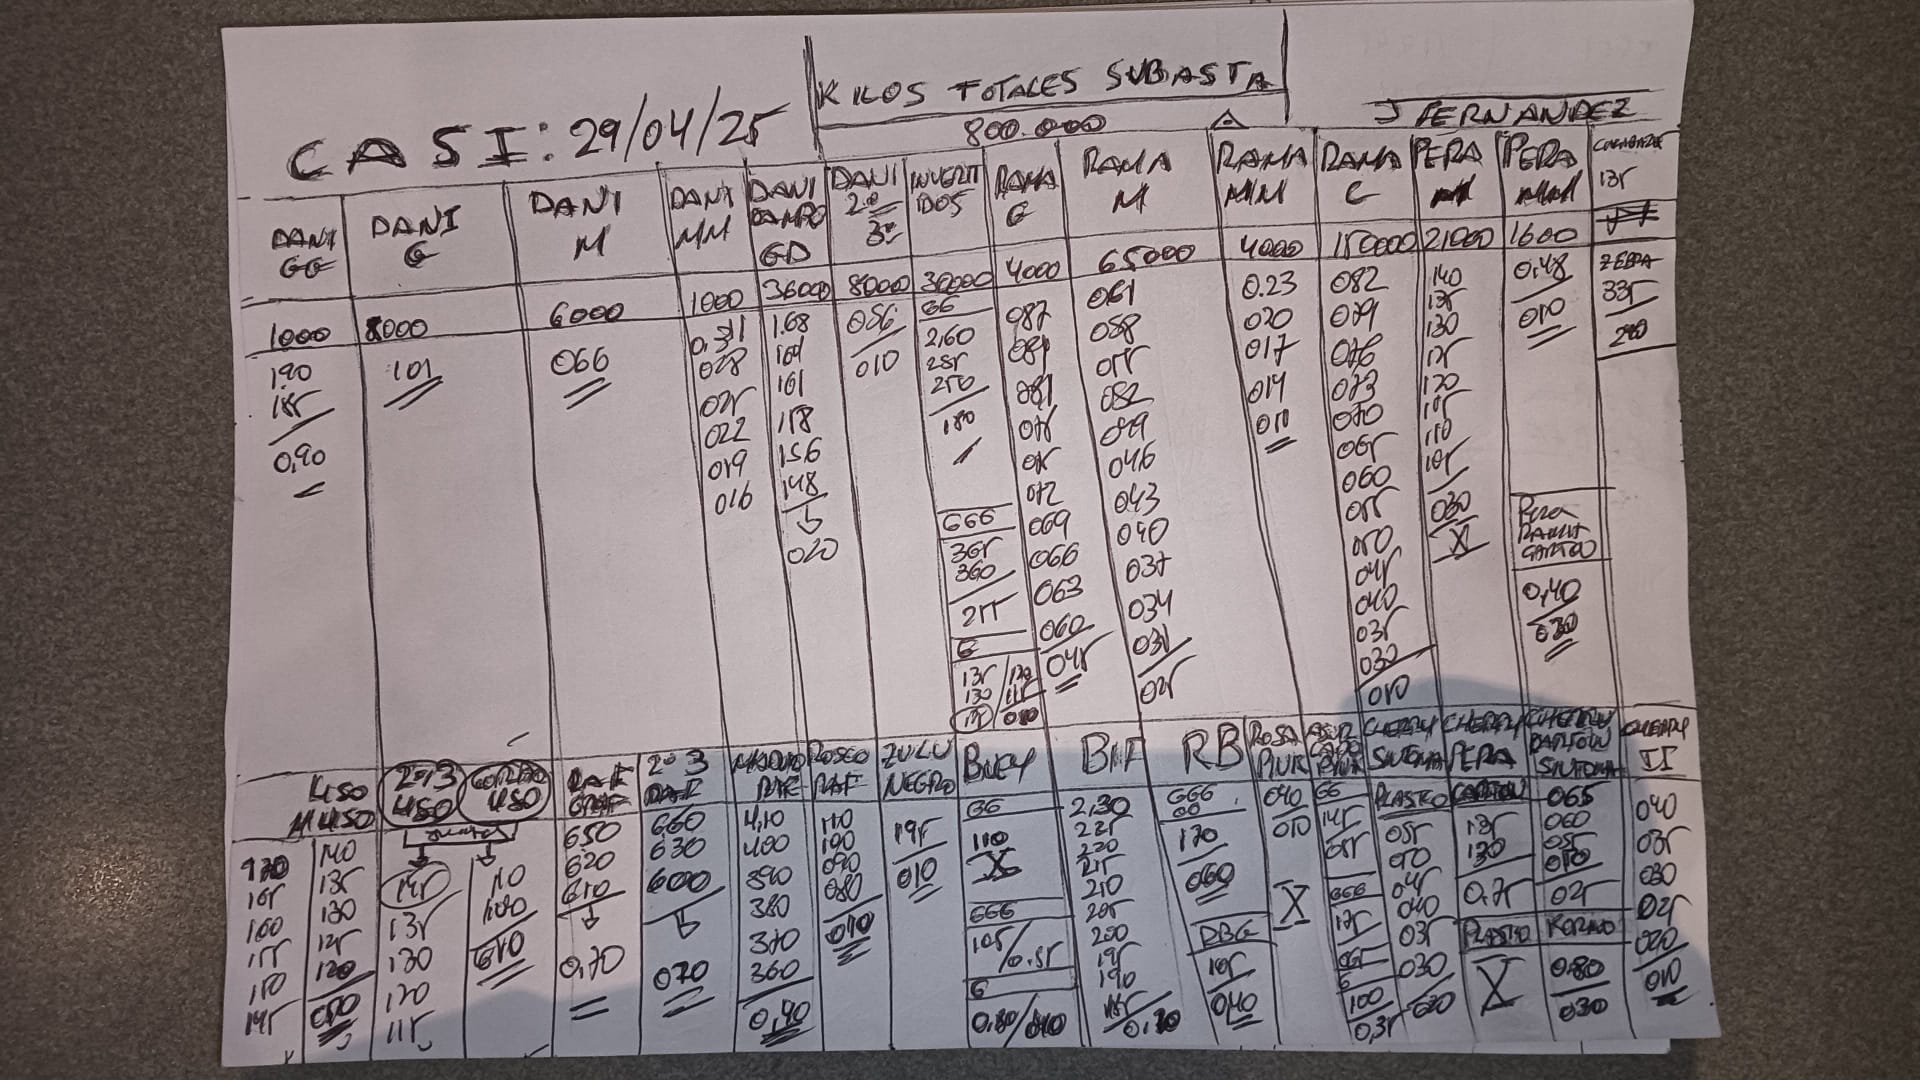 KILOS TOTALES SUBASTA
CASI: 29/04/25
800.000
J FERNANDEZ
DANI GG
1000
190
185
0,90
DANI G
8000
101
DANI M
6000
066
DANI MM
1000
0,31
028
025
022
019
016
DANI CAMPO GD
36000
1.68
164
161
158
1.56
148
020
DANI 2ª 3ª
8000
056
010
INVERTIDOS
30000
GG
2,60
255
250
180
GGG
365
360
255
G
135
130
RAMA G
4000
087
084
081
078
075
072
069
066
063
060
045
RAMA M
65000
061
058
055
052
049
046
043
040
037
034
031
025
RAMA MM
4000
0.23
020
017
014
010
RAMA C
150000
082
079
076
073
070
065
060
055
050
045
040
035
030
010
PERA M
21000
140
135
130
125
120
115
110
105
030
X
PERA MM
1600
0,48
010
PERA RAMA CARTON
0,40
030
135
ZEBRA
335
200
LISO M LISO
170
165
160
155
150
145
140
135
130
125
120
050
2ª 3 LISO
145
135
130
120
115
CORAZO LISO
110
100
010
RAF GRAF
650
620
610
0,70
2ª 3 RAF
660
630
600
070
MADURO RAF
4,10
400
390
380
370
360
0,40
ROSCO RAF
110
100
090
080
010
ZULU NEGRO
195
010
BUEY
GG
110
X
GGG
105/0.55
G
0,80/040
BIF
2,30
225
220
215
210
205
200
195
190
185/0,70
RB
GGG
GG
170
060
RBG
105
040
ROSA PINK
040
010
X
GG
145
055
GGG
125
065
G
100
0,35
CHERRY SINTOMA
PLASTICO
055
050
045
040
035
030
020
CHERRY PERA
CARTON
135
130
0.75
PLASTICO
X
CHERRY CARTON SINTOMA
065
060
055
050
025
0.80
030
CHERRY II
040
035
030
025
020
010